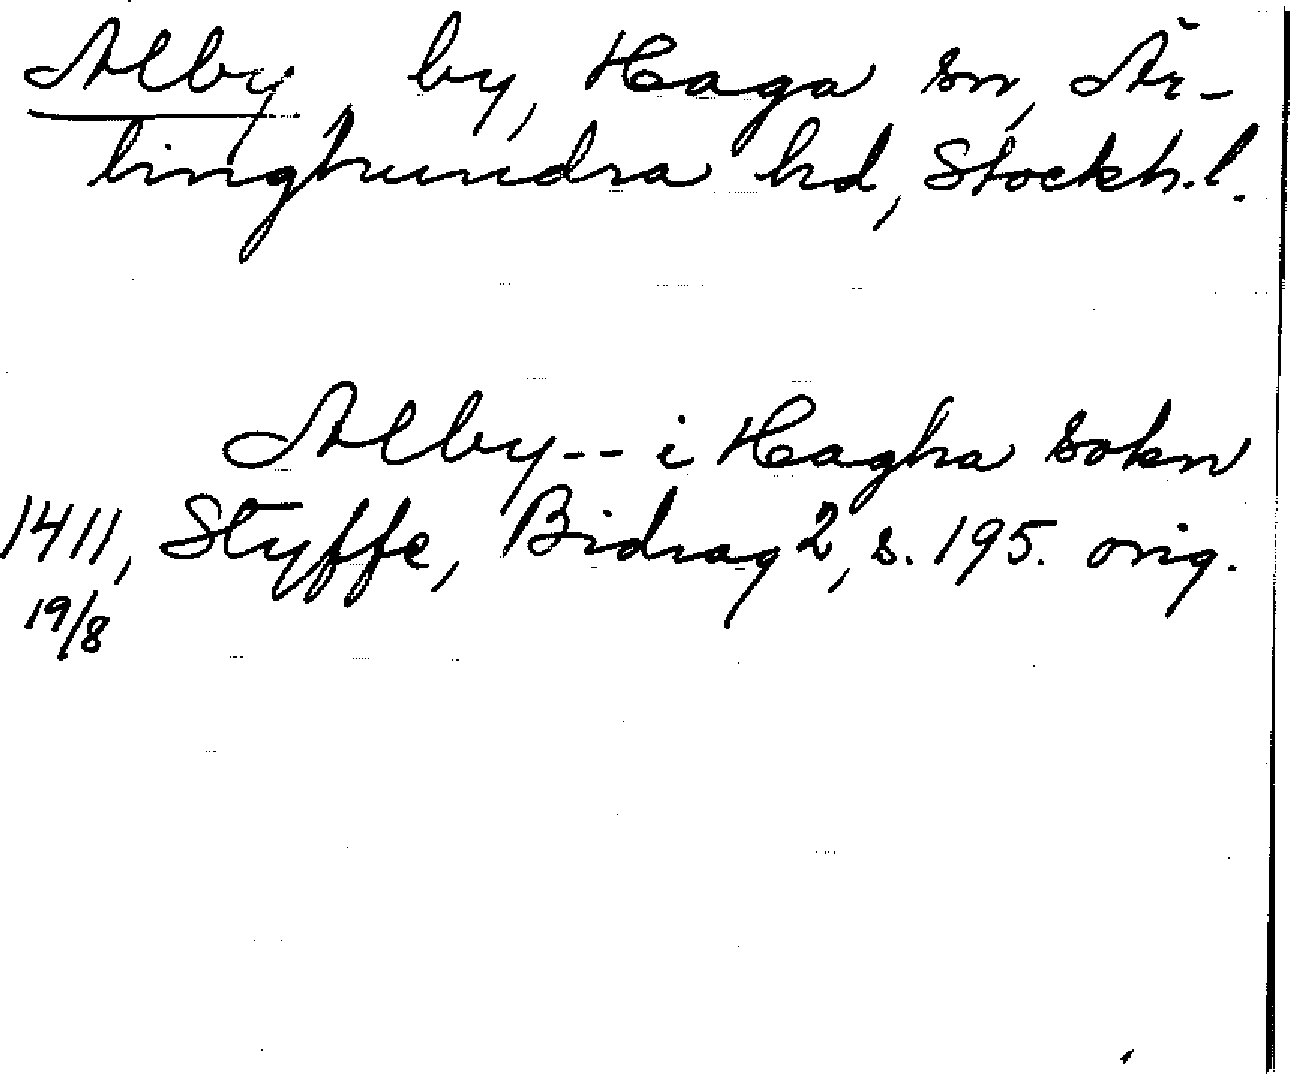 Alby by, Haga sn, Är-
linghundra hd, Stockh. l.
Alby -- i Hagha sokn
1411, Styffe, Bidrag 2, s. 195. orig.
19/8